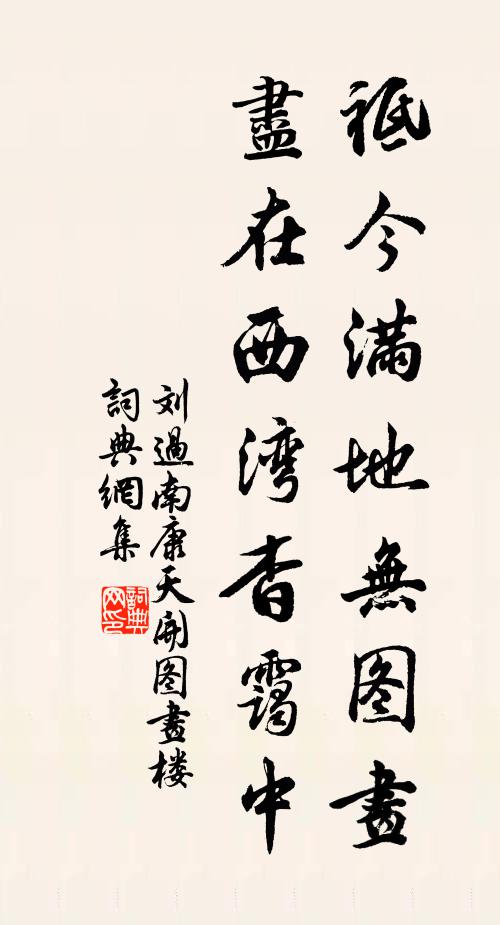 祗今满地無图畫
盡在西湾杳靄中
刘過南康天開图畫楼
詞典網集
詞典网印